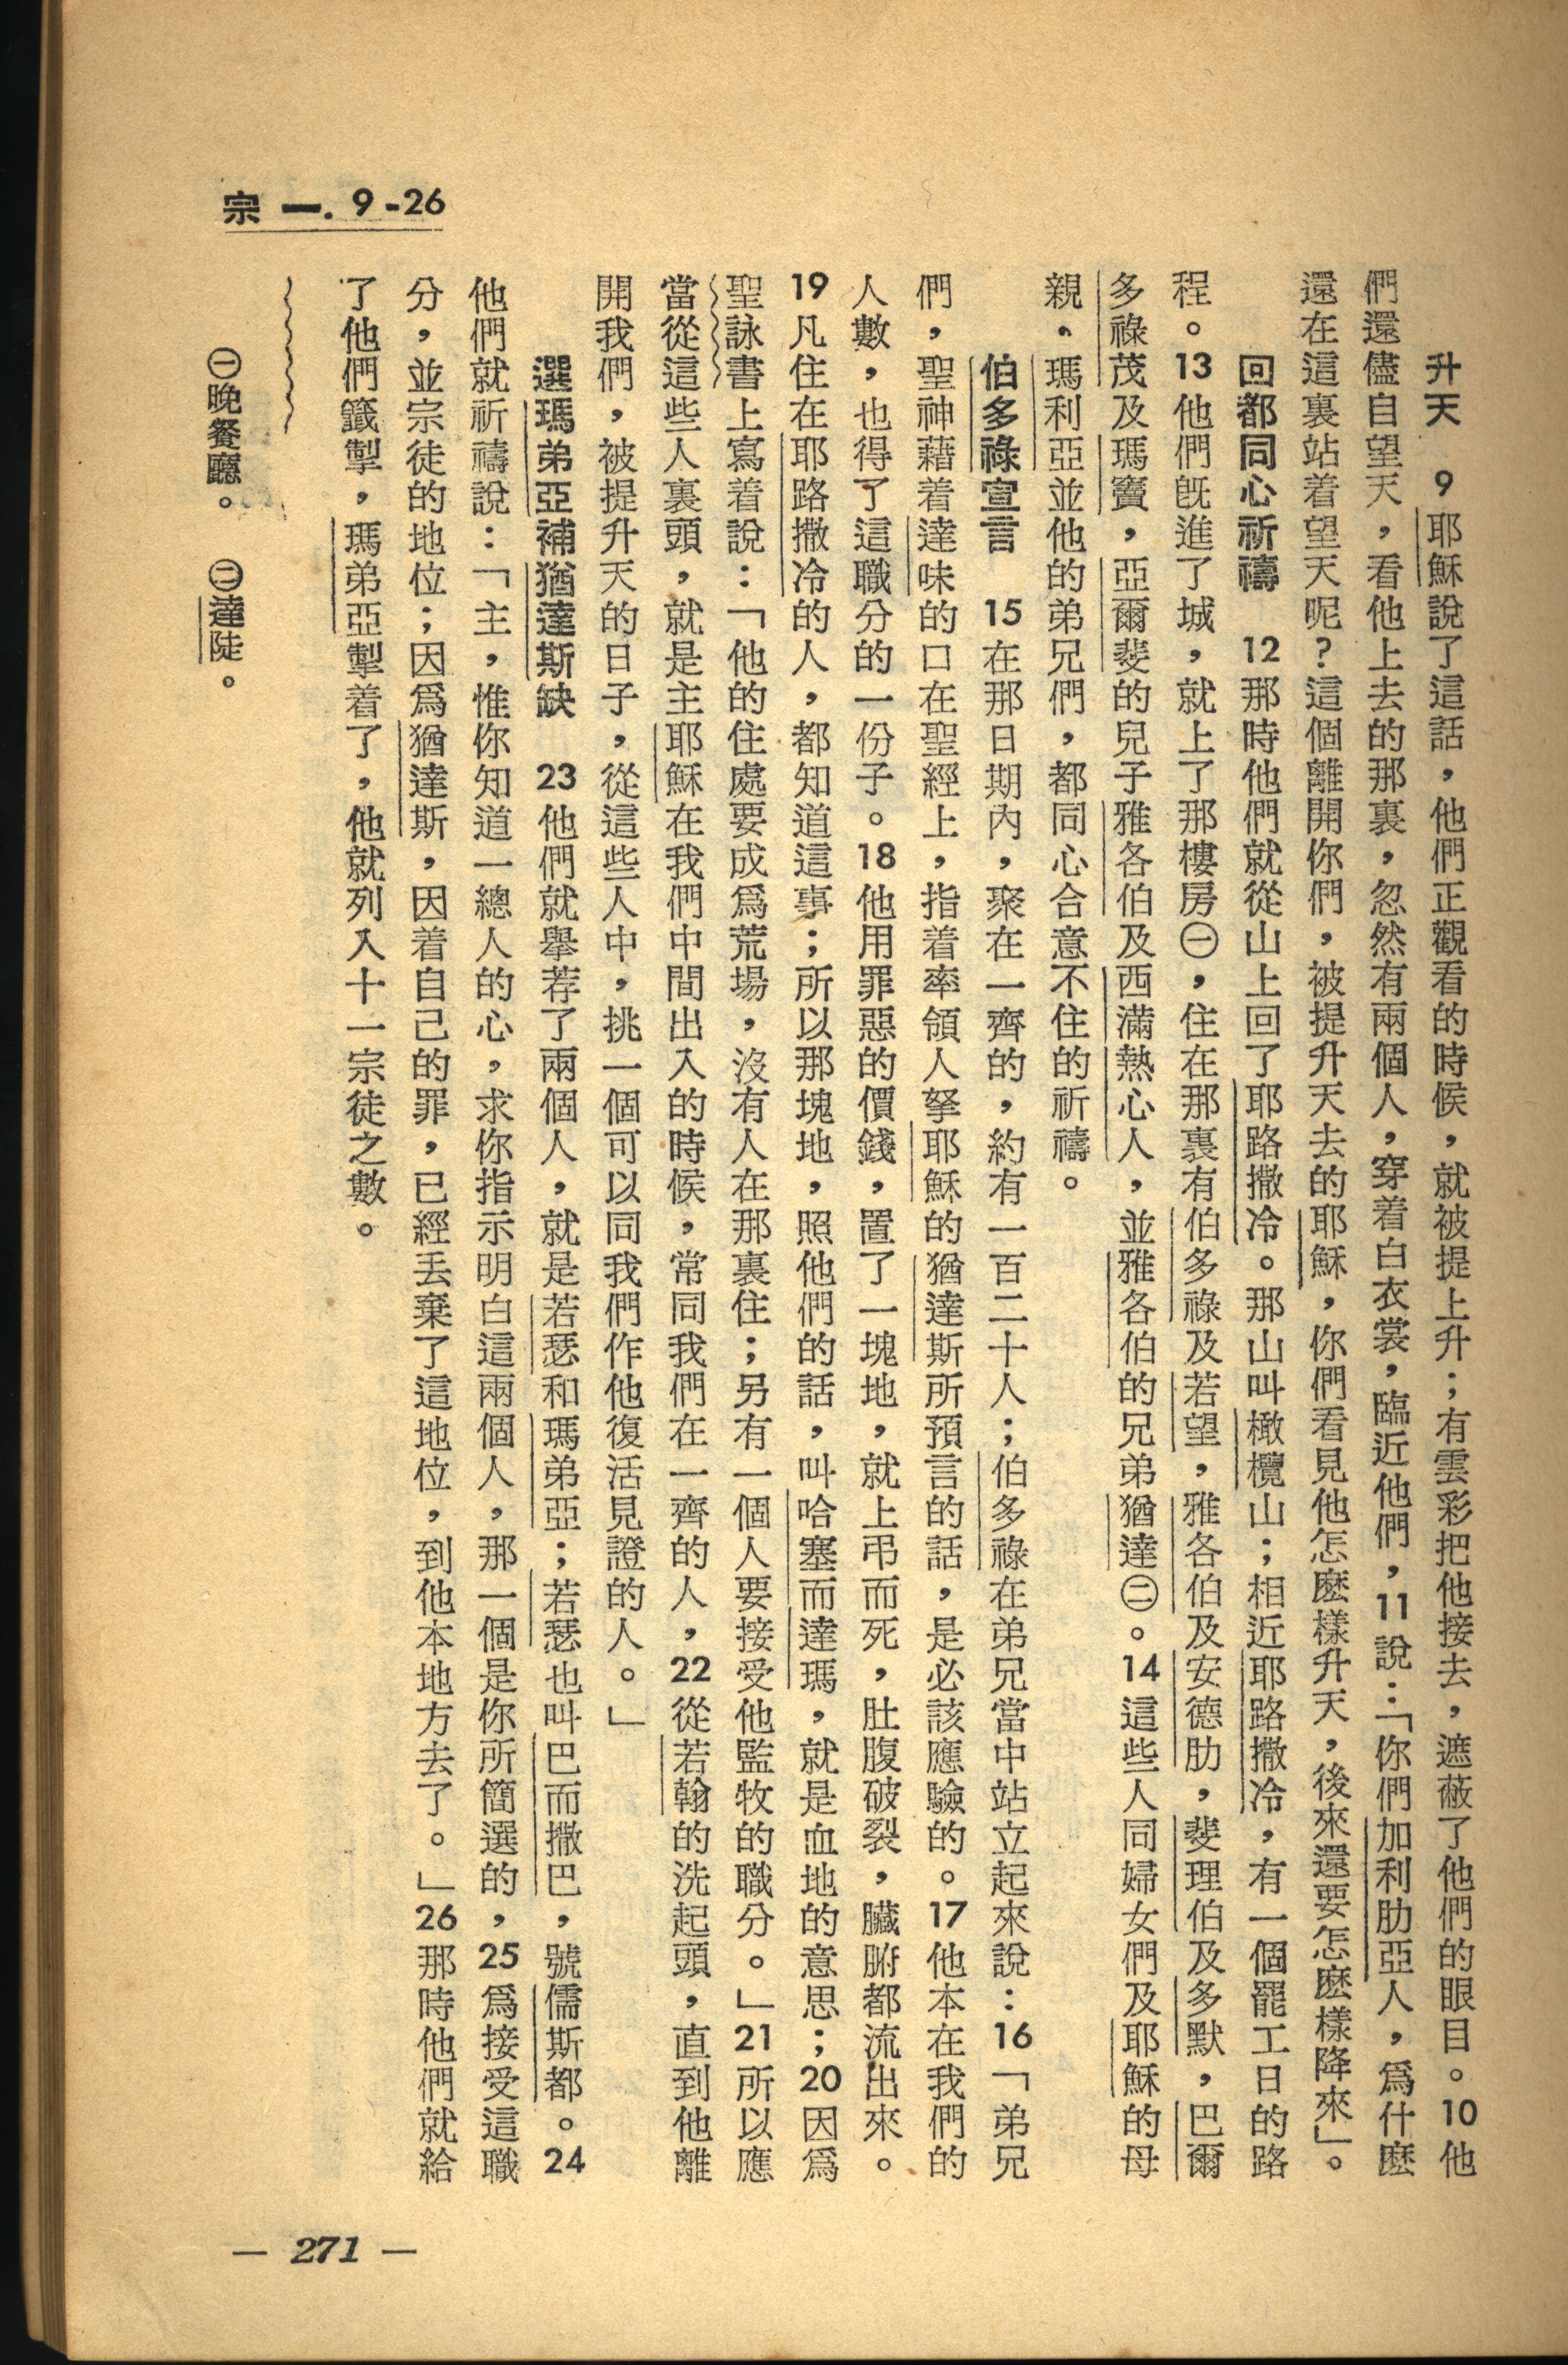 宗 一. 9-26
升天　9 耶穌說了這話，他們正觀看的時候，就被提上升；有雲彩把他接去，遮蔽了他們的眼目。10他
們還儘自望天，看他上去的那裏，忽然有兩個人，穿着白衣裳，臨近他們，11說：「你們加利肋亞人，爲什麼
還在這裏站着望天呢？這個離開你們，被提升天去的耶穌，你們看見他怎麼樣升天，後來還要怎麼樣降來」。
回都同心祈禱　12那時他們就從山上回了耶路撒冷。那山叫橄欖山；相近耶路撒冷，有一個罷工日的路
程。13他們旣進了城，就上了那樓房㊀，住在那裏有伯多祿及若望，雅各伯及安德肋，斐理伯及多默，巴爾
多祿茂及瑪竇，亞爾斐的兒子雅各伯及西滿熱心人，並雅各伯的兄弟猶達㊁。14這些人同婦女們及耶穌的母
親・瑪利亞並他的弟兄們，都同心合意不住的祈禱。
伯多祿宣言　15在那日期內，聚在一齊的，約有一百二十人；伯多祿在弟兄當中站立起來說：16「弟兄
們，聖神藉着達味的口在聖經上，指着率領人拏耶穌的猶達斯所預言的話，是必該應驗的。17他本在我們的
人數，也得了這職分的一份子。18他用罪惡的價錢，置了一塊地，就上弔而死，肚腹破裂，臟腑都流出來。
19凡住在耶路撒冷的人，都知道這事；所以那塊地，照他們的話，叫哈塞而達瑪，就是血地的意思；20因爲
聖詠書上寫着說：「他的住處要成爲荒場，沒有人在那裏住；另有一個人要接受他監牧的職分。」21所以應
當從這些人裏頭，就是主耶穌在我們中間出入的時候，常同我們在一齊的人，22從若翰的洗起頭，直到他離
開我們，被提升天的日子，從這些人中，挑一個可以同我們作他復活見證的人。」
選瑪弟亞補猶達斯缺　23他們就舉荐了兩個人，就是若瑟和瑪弟亞；若瑟也叫巴而撒巴，號儒斯都。24
他們就祈禱說：「主，惟你知道一總人的心，求你指示明白這兩個人，那一個是你所簡選的，25爲接受這職
分，並宗徒的地位；因爲猶達斯，因着自己的罪，已經丢棄了這地位，到他本地方去了。」26那時他們就給
了他們籤掣，瑪弟亞掣着了，他就列入十一宗徒之數。
㊀晚餐廳。　㊁達陡。
— 271 —